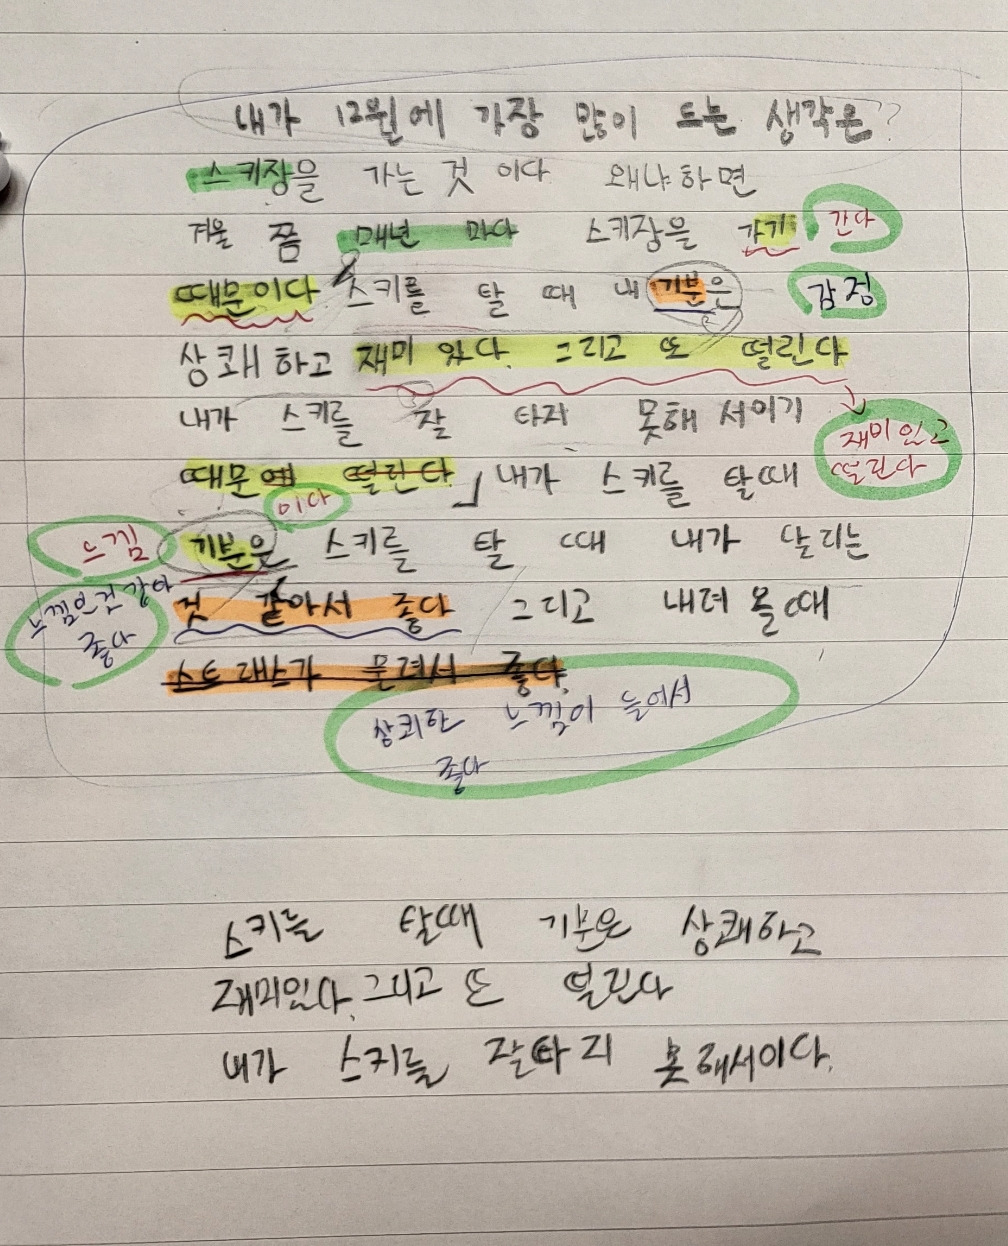 내가 12월에 가장 많이 드는 생각은?
스키장을 가는 것 이다 왜냐하면
겨울 쯤 매년 마다 스키장을 가기 간다
때문이다 스키를 탈 때 내 기분은 감정
상쾌하고 재미 있다. 그리고 또 떨린다
내가 스키를 잘 타지 못해서이기
재미있고
떨린다
때문에 떨린다 내가 스키를 탈때
이다
느낌 기분은 스키를 탈 때 내가 날리는
느낌인것 같아
좋다
것 같아서 좋다 그리고 내려 올때
스트래스가 풀려서 좋다.
상쾌한 느낌이 들어서
좋다
스키를 탈때 기분은 상쾌하고
재미있다. 그리고 또 떨린다
내가 스키를 잘타지 못해서이다.